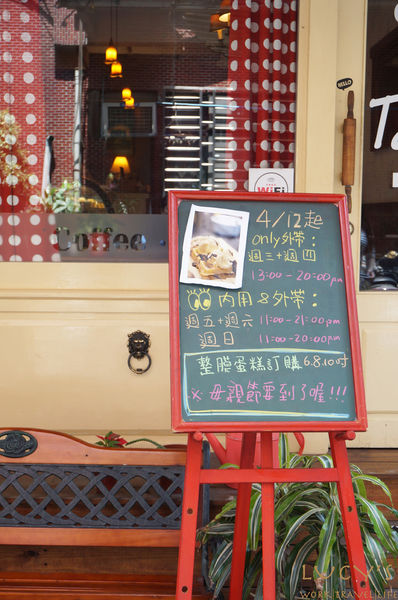 HELLO
WiFi
Coffee
4/12起
only外帶:
週三+週四
13:00-20:00pm
內用&外帶:
週五+週六 11:00-21:00pm
週日 11:00-20:00pm
整模蛋糕訂購 6.8.10吋
※母親節要到了喔!!!
LUCY'S
WORK.TRAVEL.LIFE